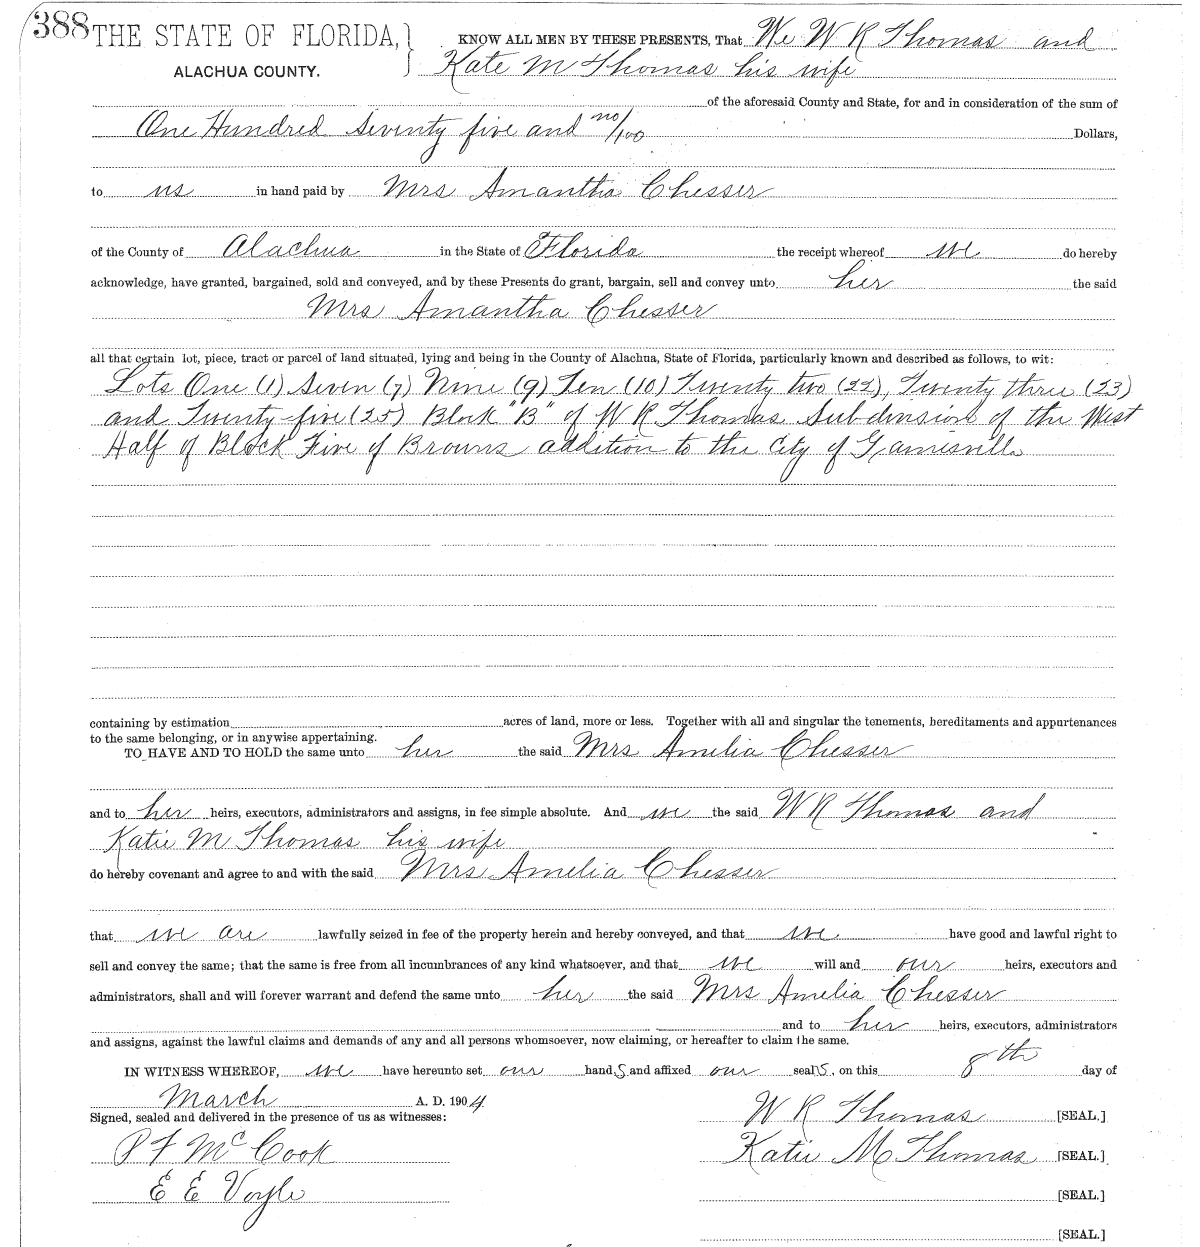 388 THE STATE OF FLORIDA, } KNOW ALL MEN BY THESE PRESENTS, That We W R Thomas and
ALACHUA COUNTY. Kate M Thomas his wife
of the aforesaid County and State, for and in consideration of the sum of
One Hundred Seventy five and no/100 Dollars,
to us in hand paid by Mrs Amantha Chesser
of the County of Alachua in the State of Florida the receipt whereof we do hereby
acknowledge, have granted, bargained, sold and conveyed, and by these Presents do grant, bargain, sell and convey unto her the said
Mrs Amantha Chesser
all that certain lot, piece, tract or parcel of land situated, lying and being in the County of Alachua, State of Florida, particularly known and described as follows, to wit:
Lots One (1) Seven (7) Nine (9) Ten (10) Twenty two (22), Twenty three (23)
and Twenty five (25) Block "B" of W R Thomas Subdivision of the West
Half of Block Five of Browns addition to the City of Gainesville
containing by estimation acres of land, more or less. Together with all and singular the tenements, hereditaments and appurtenances
to the same belonging, or in anywise appertaining.
TO HAVE AND TO HOLD the same unto her the said Mrs Amelia Chesser
and to her heirs, executors, administrators and assigns, in fee simple absolute. And we the said W R Thomas and
Katie M Thomas his wife
do hereby covenant and agree to and with the said Mrs Amelia Chesser
that we are lawfully seized in fee of the property herein and hereby conveyed, and that we have good and lawful right to
sell and convey the same; that the same is free from all incumbrances of any kind whatsoever, and that we will and our heirs, executors and
administrators, shall and will forever warrant and defend the same unto her the said Mrs Amelia Chesser
and to her heirs, executors, administrators
and assigns, against the lawful claims and demands of any and all persons whomsoever, now claiming, or hereafter to claim the same.
IN WITNESS WHEREOF, we have hereunto set our hands and affixed our seals, on this 8th day of
March A. D. 1904
Signed, sealed and delivered in the presence of us as witnesses: W R Thomas [SEAL.]
P F McCook Katie M Thomas [SEAL.]
E E Voyle [SEAL.]
[SEAL.]